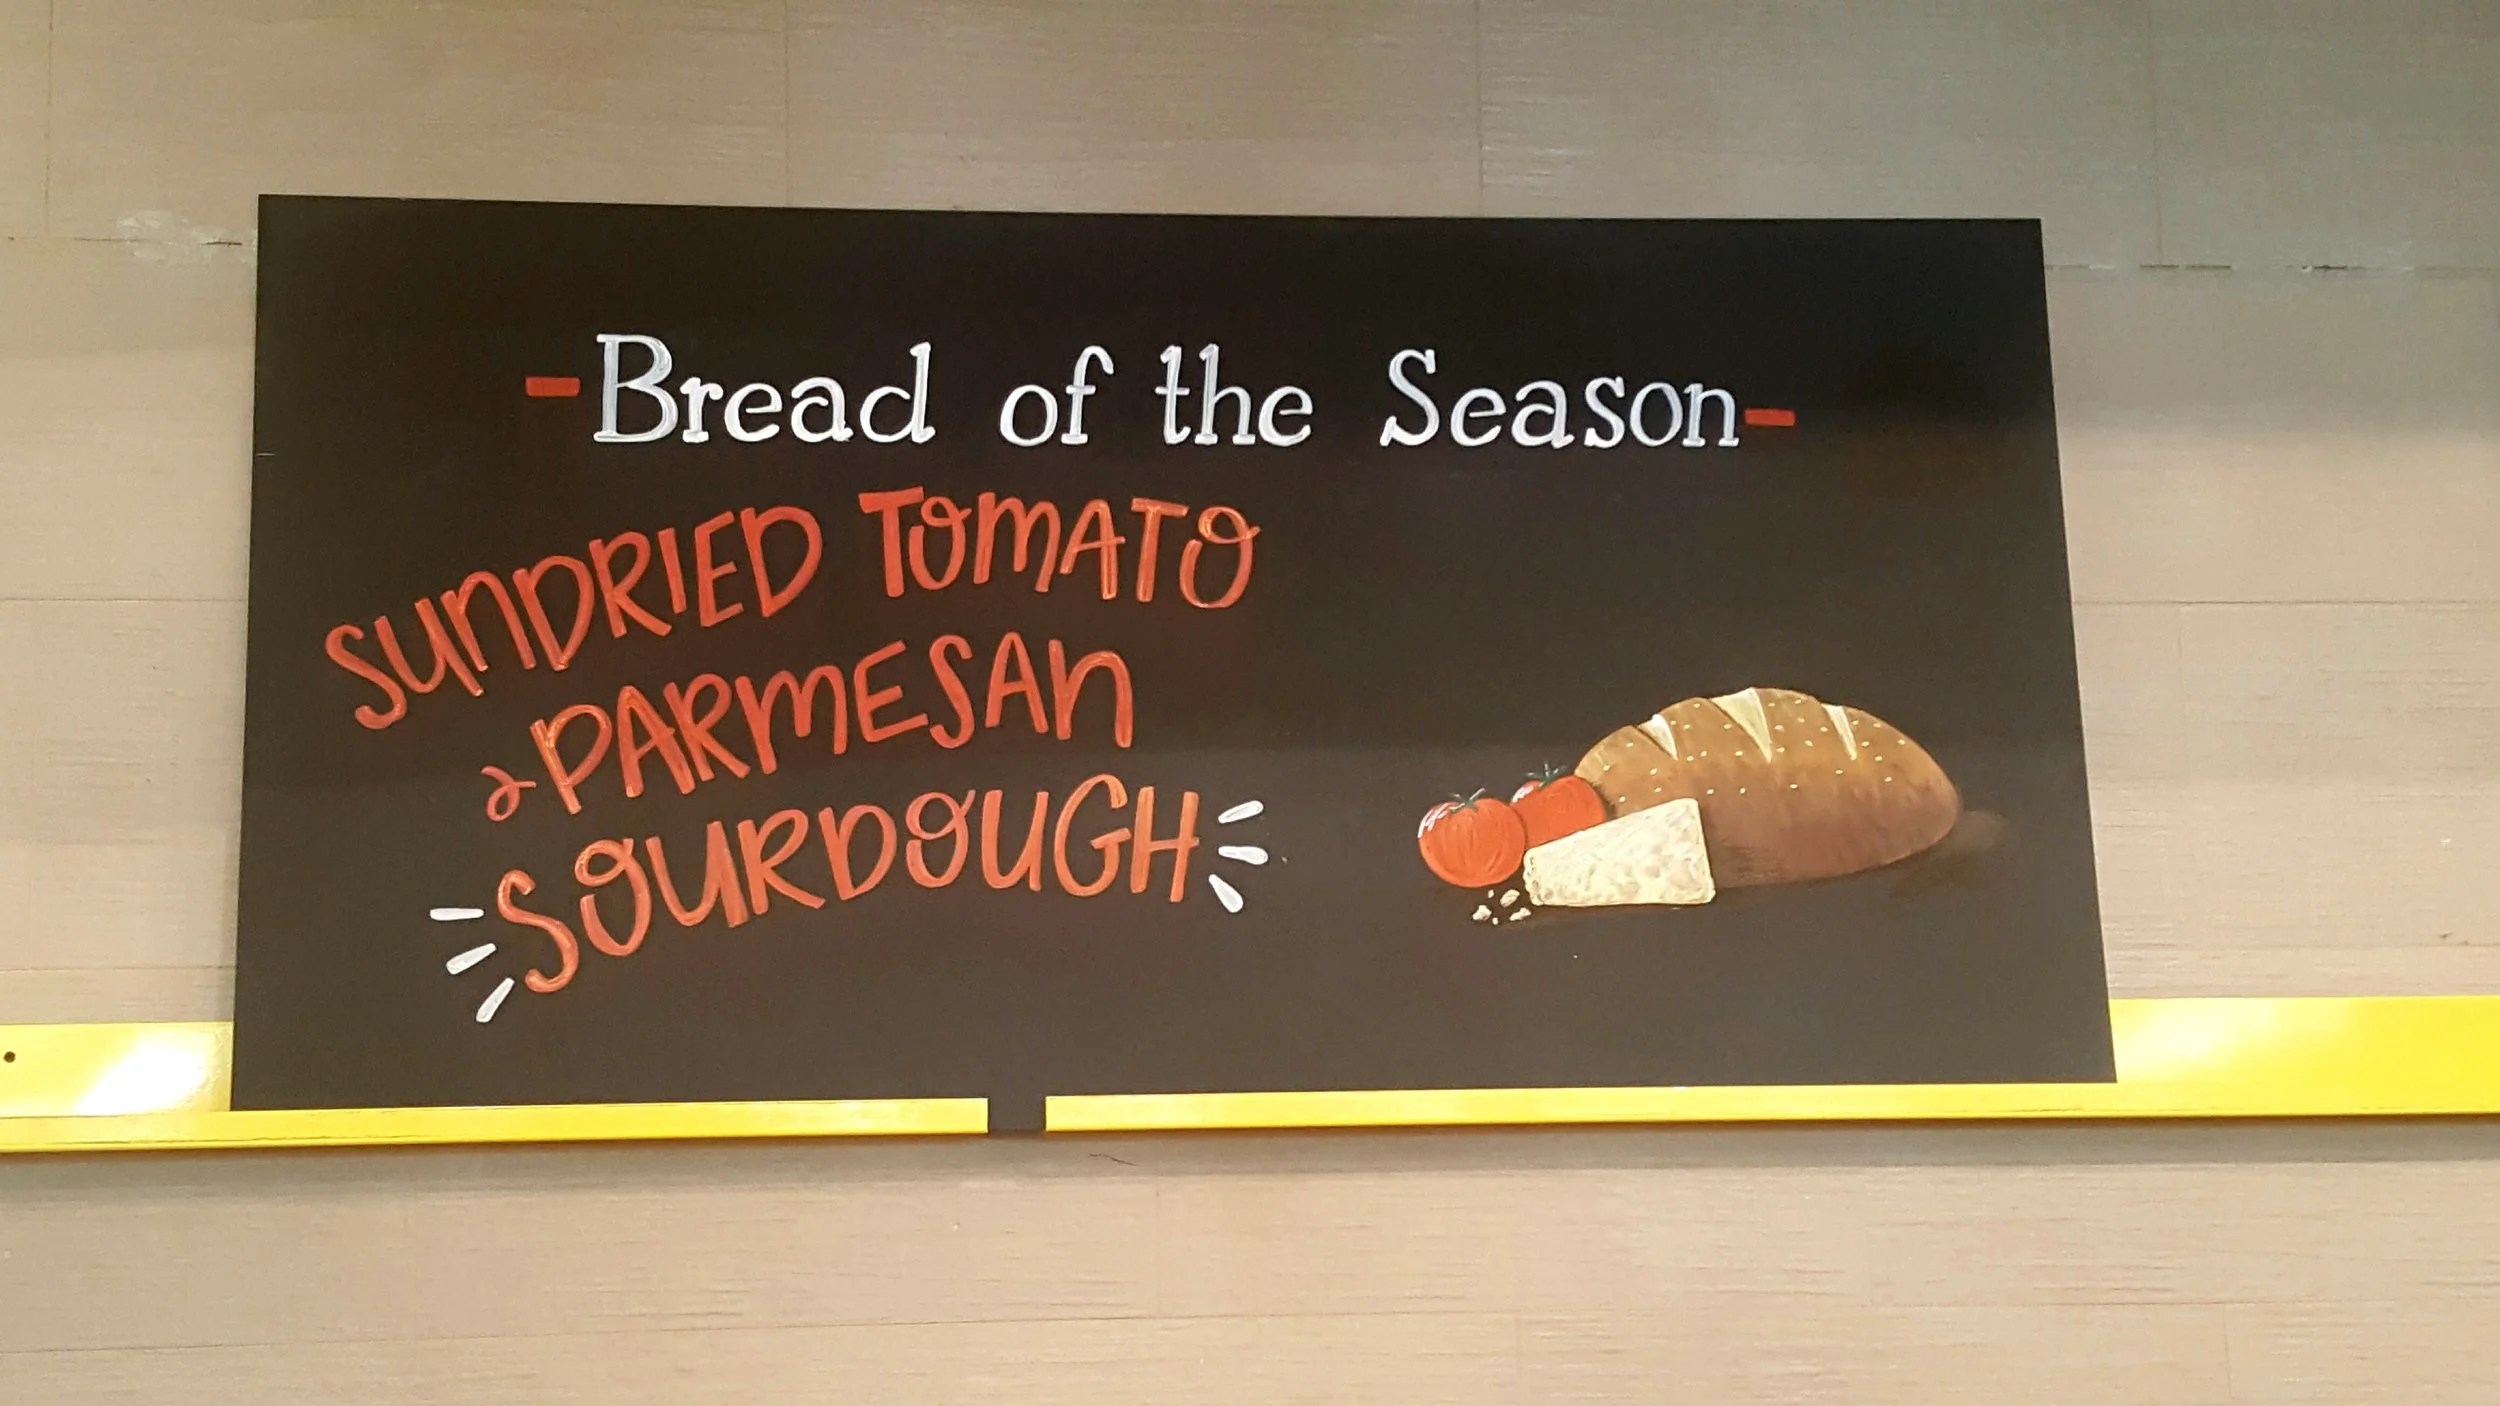 -Bread of the Season-
SUNDRIED TOMATO
& PARMESAN
SOURDOUGH